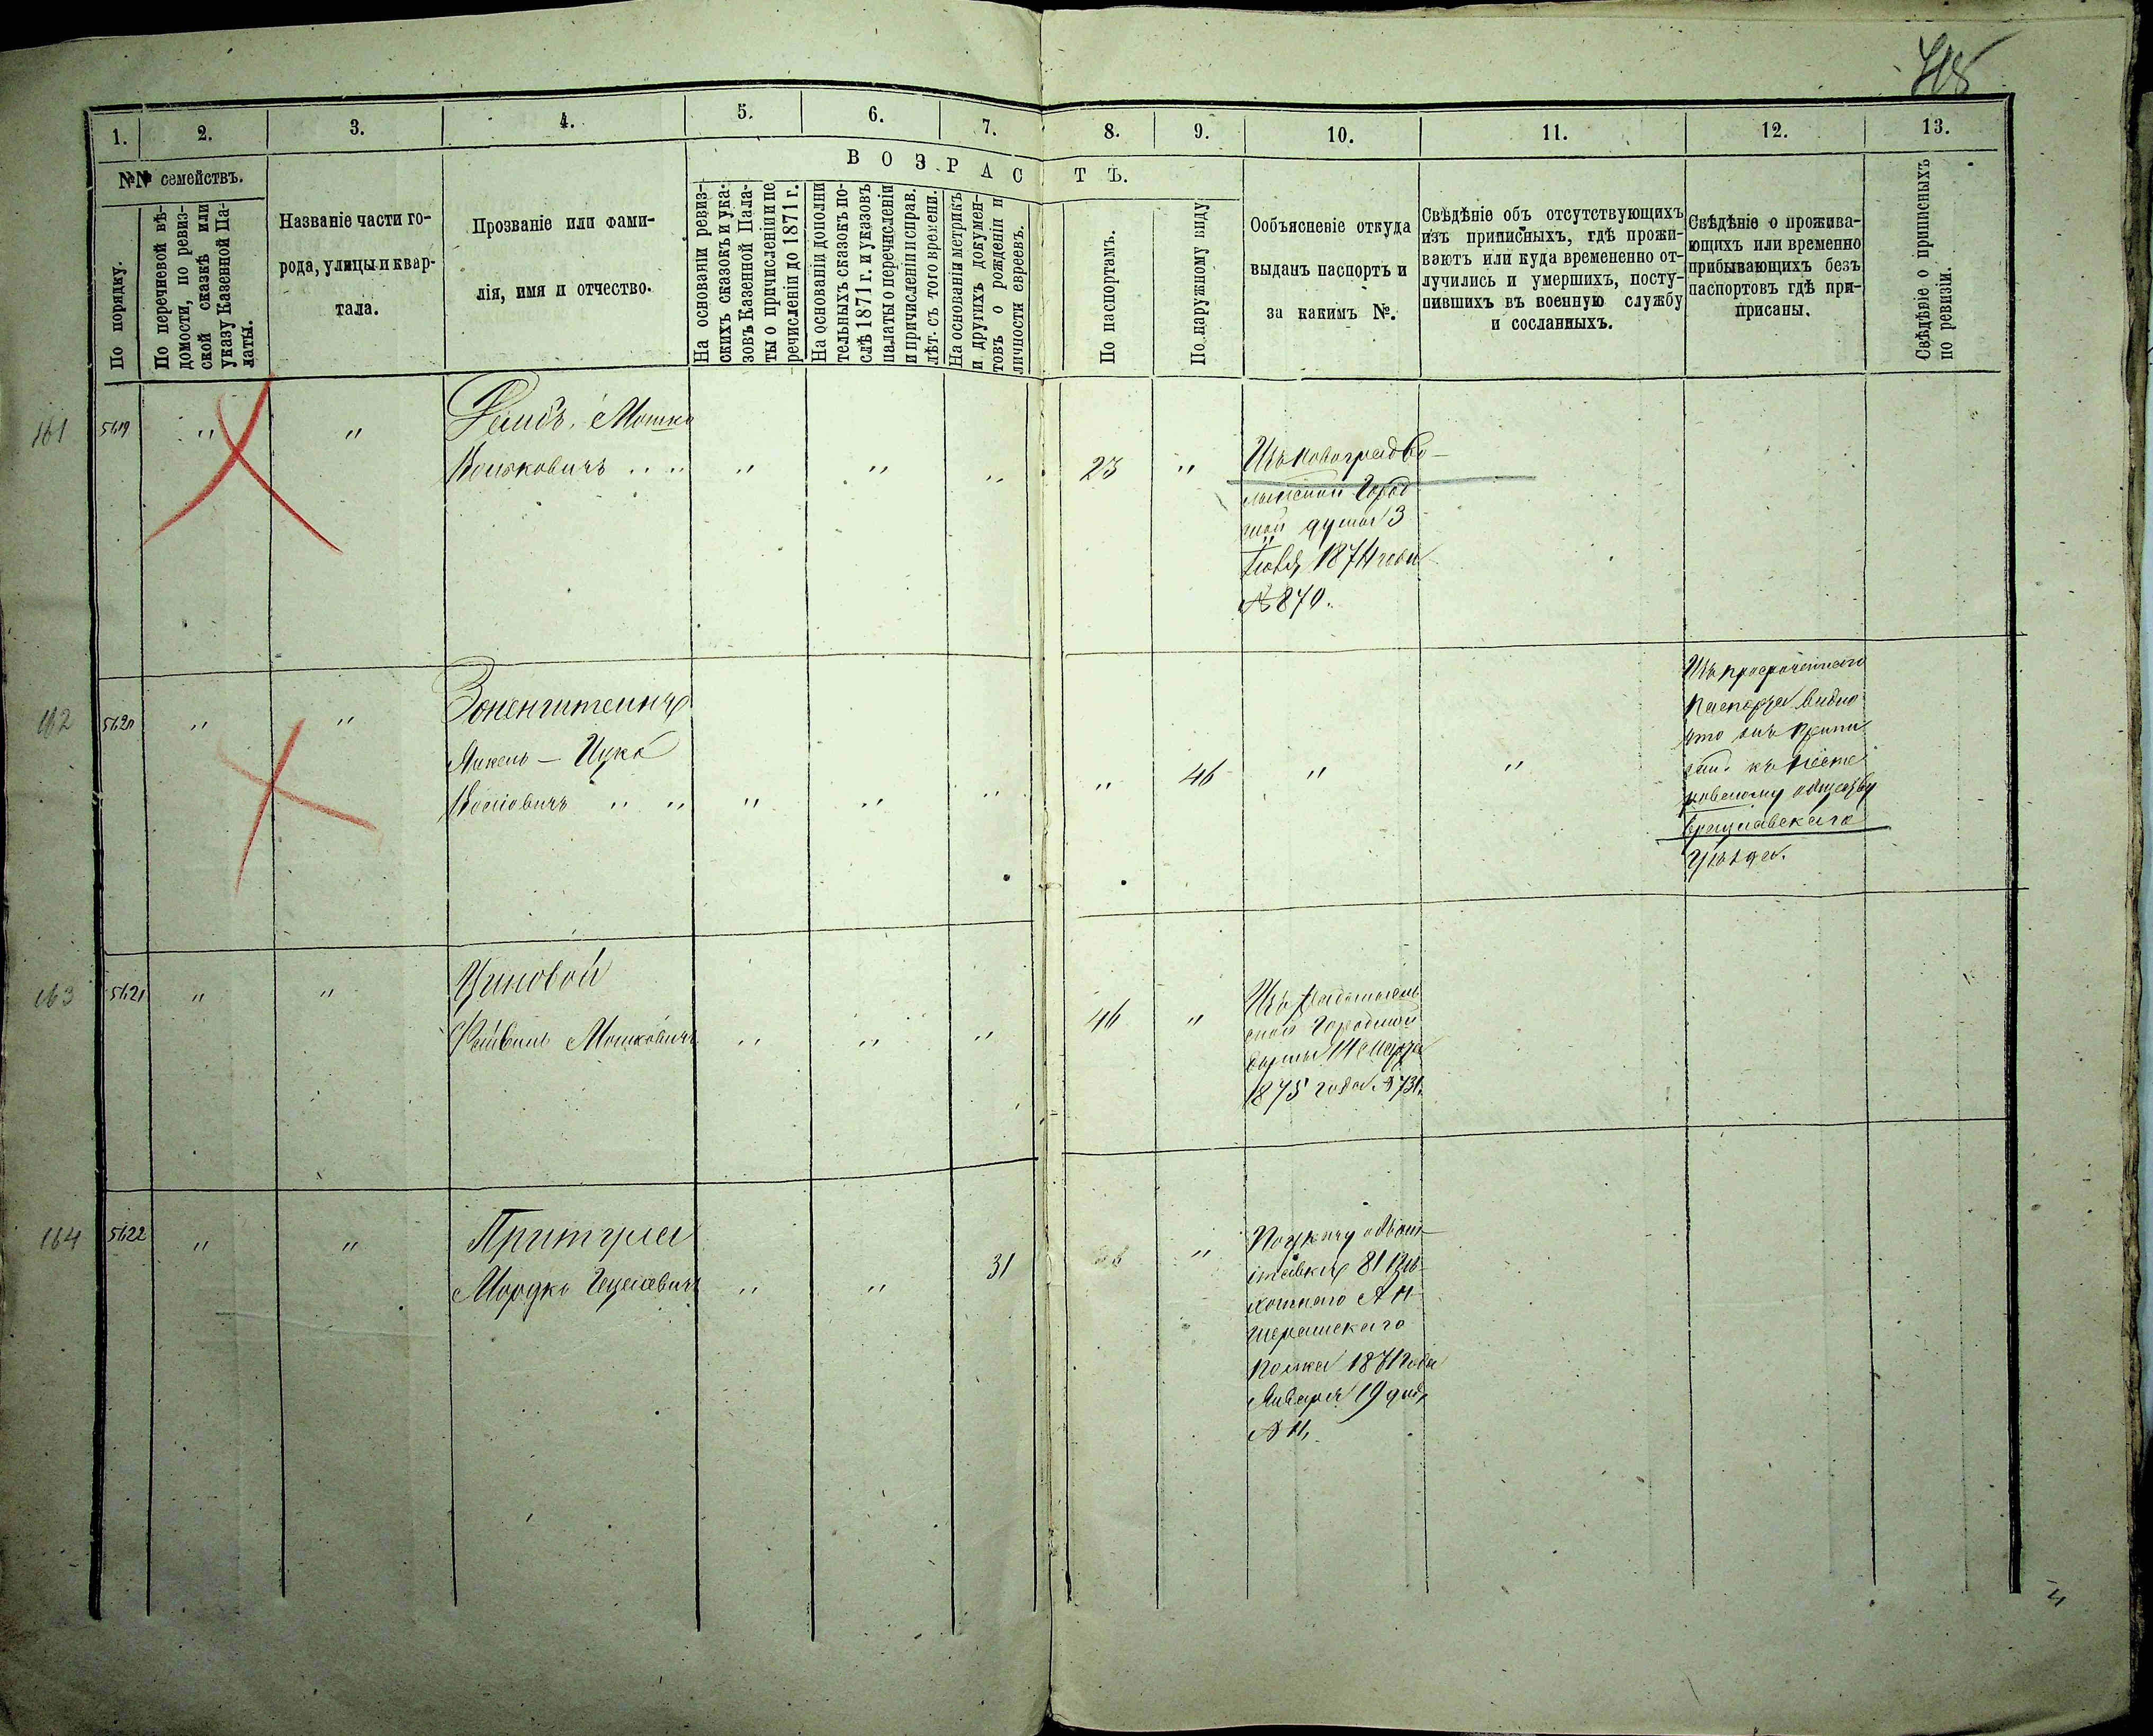 718
1. 2. 3. 4. 5. 6. 7. 8. 9. 10. 11. 12. 13.
В О З Р А С Т Ъ.
№№ семействъ.
По порядку.
По перечневой вѣ-
домости, по ревиз-
ской сказкѣ или
указу Казенной Па-
латы.
Названіе части го-
рода, улицы и квар-
тала.
Прозваніе или фами-
лія, имя и отчество.
На основаніи ревиз-
скихъ сказокъ и ука-
зовъ Казенной Пала-
ты о причисленіи и пе
речисленіи до 1871 г.
На основаніи дополни
тельныхъ сказокъ по-
слѣ 1871 г. и указовъ
палаты о перечисленіи
и причисленіи исправ.
лѣт. съ того времени.
На основаніи метрикъ
и другихъ докумен-
товъ о рожденіи и
личности евреевъ.
По паспортамъ.
По наружному виду
Ообъясненіе откуда
выданъ паспортъ и
за какимъ №.
Свѣдѣніе объ отсутствующихъ
изъ приписныхъ, гдѣ прожи-
ваютъ или куда временно от-
лучились и умершихъ, посту-
пившихъ въ военную службу
и сосланныхъ.
Свѣдѣніе о прожива-
ющихъ или временно
прибывающихъ безъ
паспортовъ гдѣ при-
присаны.
Свѣдѣніе о приписныхъ
по ревизіи.
161 5619 " "
Мошко
" " " 23 "
Изъ Новоградво-
лынской Город
ской думы 3
1874 года
№ 870.
162 5620 " "
Зоненштейнъ
Янкель - Ицко
" " " " 46 " "
Изъ просроченнаго
паспорта видно
что онъ припи
санъ къ
обществу
Брацлавскаго
Уѣзда.
163 5621 " "
Мошковичъ " " " 46 "
Изъ Радомысль
ской Городской
думы 14 Марта
1875 года № 731.
164 5622 " "
Притула
Мордко " " 31 "
По указу объ от-
ставкѣ 81 Пѣ-
хотнаго Ап-
шеронскаго
Полка 1871 года
Января 19 дня,
№ 11,